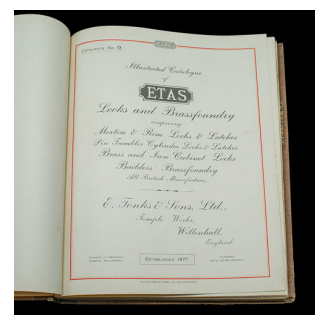 Catalogue No 9.
Illustrated Catalogue
of
ETAS
Locks and Brassfoundry
comprising
Mortise & Rim Locks & Latches
Pin Tumbler Cylinder Locks & Latches
Brass and Iron Cabinet Locks
Builders' Brassfoundry
All British Manufacture.
E. Tonks & Sons, Ltd.,
Temple Works,
Willenhall,
England.
Established 1877.